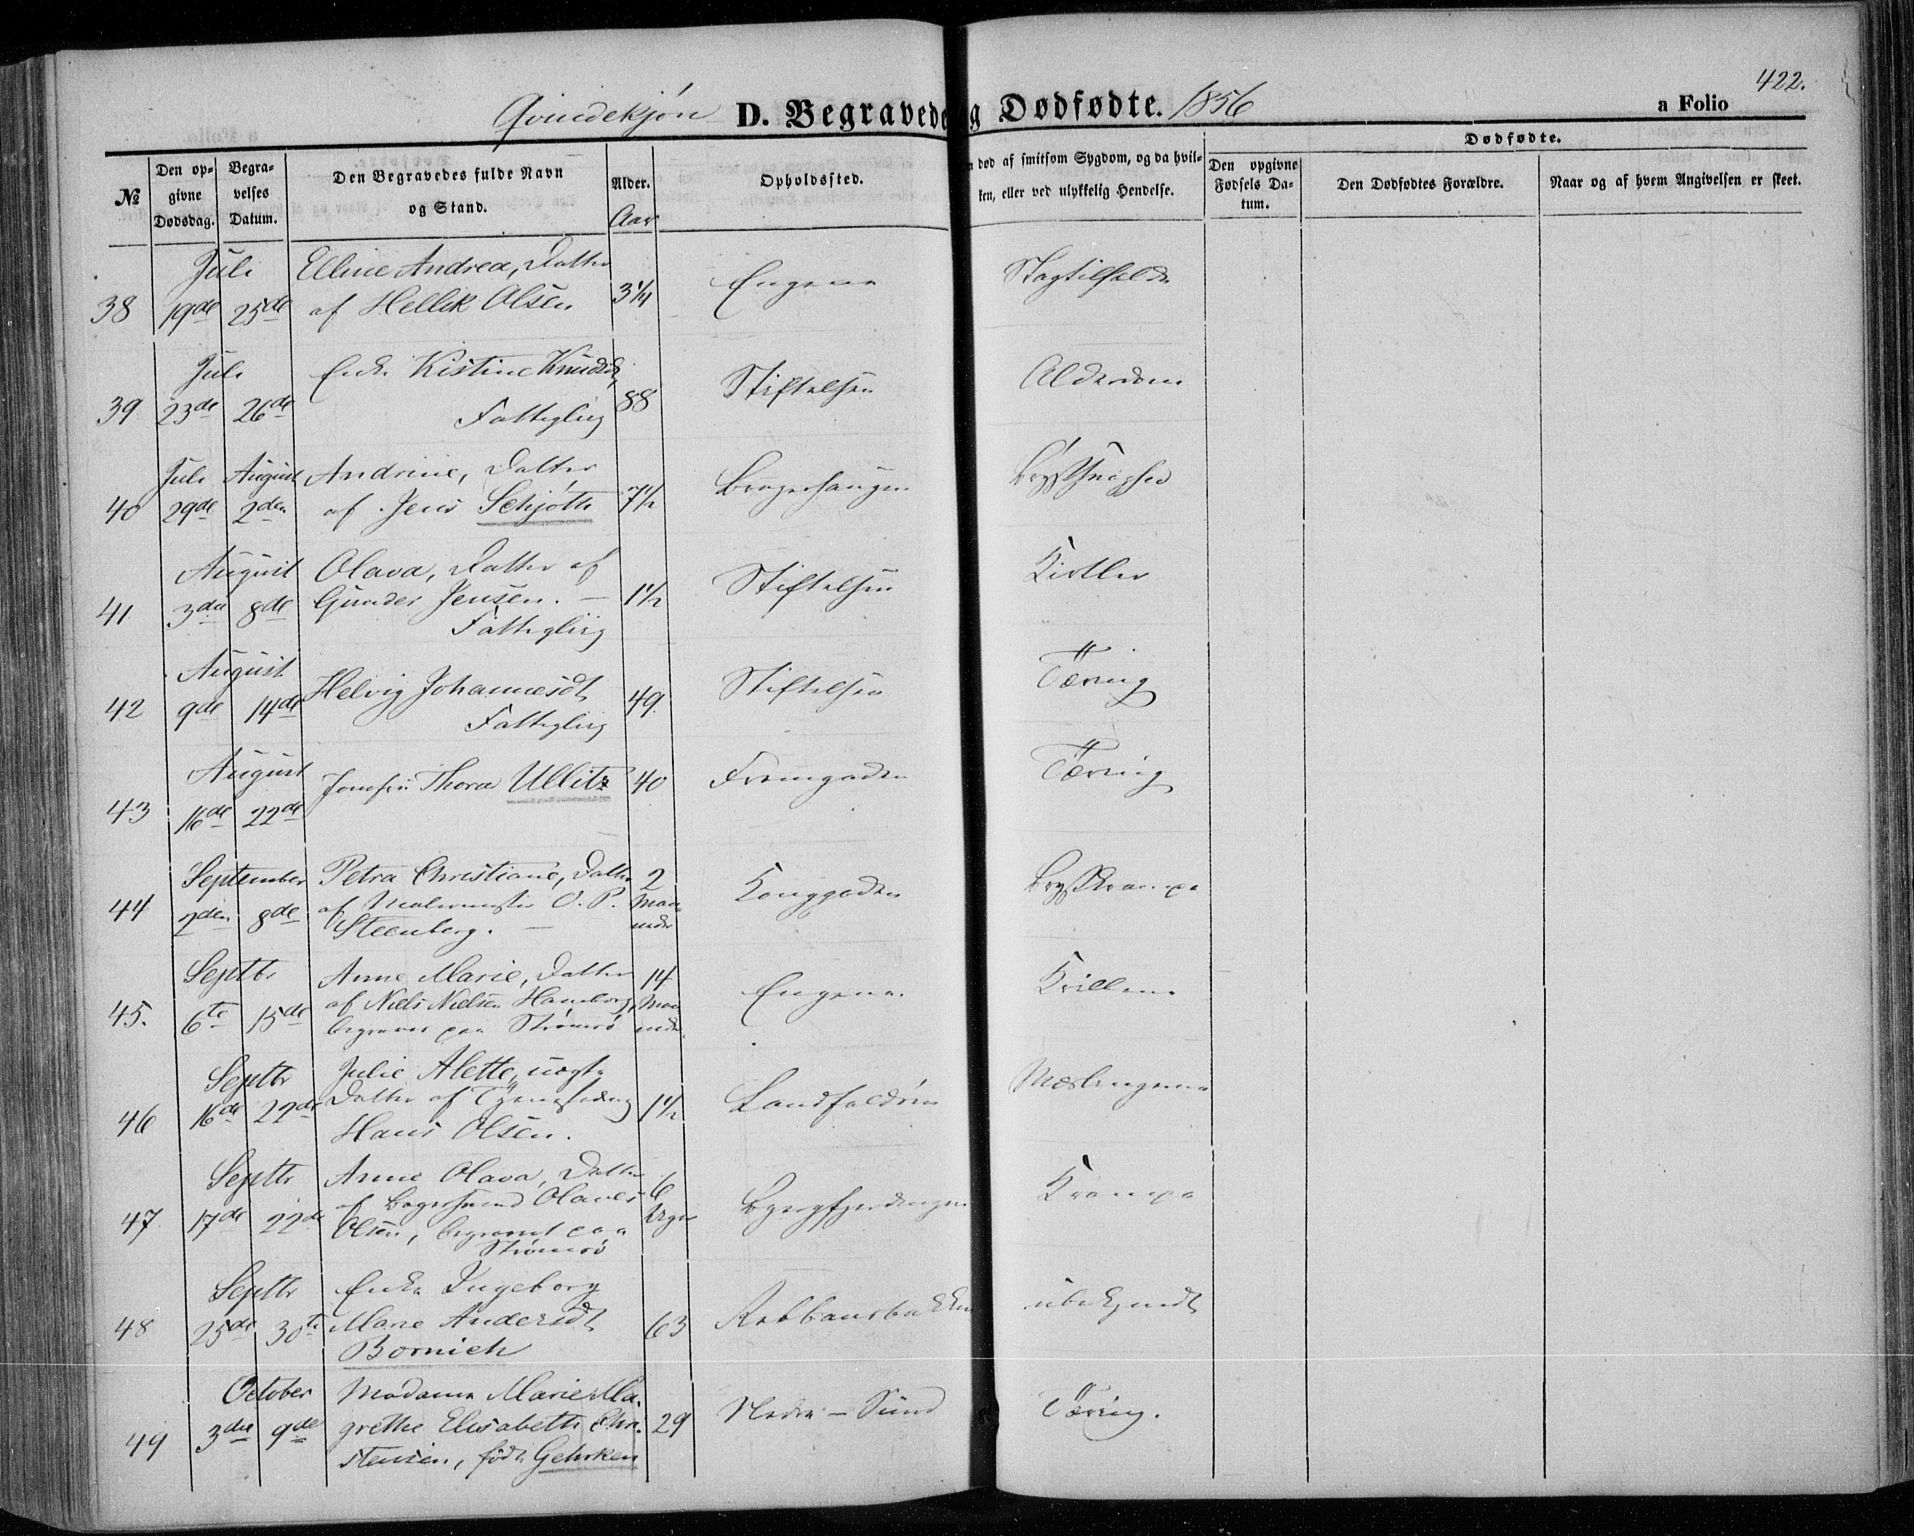 422.
Qvindekjøn D. Begravede og Dødfødte. 1856 a Folio
No
Den opgivne Dødsdag.
Begravelses Datum.
Den Begravedes fulde Navn og Stand.
Alder.
Aar
Opholdssted.
død af smitsom Sygdom, og da hvilken, eller ved ulykkelig Hendelse.
Dødfødte.
Den opgivne Fødsels Datum.
Den Dødfødtes Forældre.
Naar og af hvem Angivelsen er skeet.
Juli Elline Andrea, Datter
38 19de 25de af Hellik Olsen 3 1/4 Engene Slagtilfælde
Juli Enke Kistine Knudsd,
39 23de 26de Fattiglig 88 Stiftelsen Alderdom
Juli August Andrine, Datter
40 29de 2den af Jens Schjøtte 7 1/2 Bragerhaugen
August Olava, Datter af
41 3die 8de Gunder Jensen. — 1 1/2 Stiftelsen Kirtler
Fattiglig
August Helvig Johannesdt
42 9de 14de Fattiglig 49. Stiftelsen Tæring
August Jomfru Thora Ullitz 40 Fremgaden Tæring
43 16de 22de
September Petra Christiane, Datter 2
44 2den 8de af Malermester O. P. Maaneder Konggaden Brystkrampe
Steenberg. —
Septbr Anne Marie, Datter 14
45. 6te 15de af Niels Nielsen Hamborg, Maaneder Engene.
begraven paa Strømsø
Septbr Julie Alette, uægte
46 16de 22de Datter af 1 1/2 Landfaldøen Mæslingerne
Hans Olsen.
Septbr Anne Olava, Datter 6
47. 17de 22de af Bagersvend Olaves Uger Krampe
Olsen, begravet paa
Strømsø
Septbr Enke Ingeborg
48 25de 30te Marie Andersdt 63 ubekjendt
Bornich
October Madame Marie Ma-
49 3die 9de grethe Elisabeth Chri- 29 Nedre – Sund Tæring.
stensen, født Gehrken